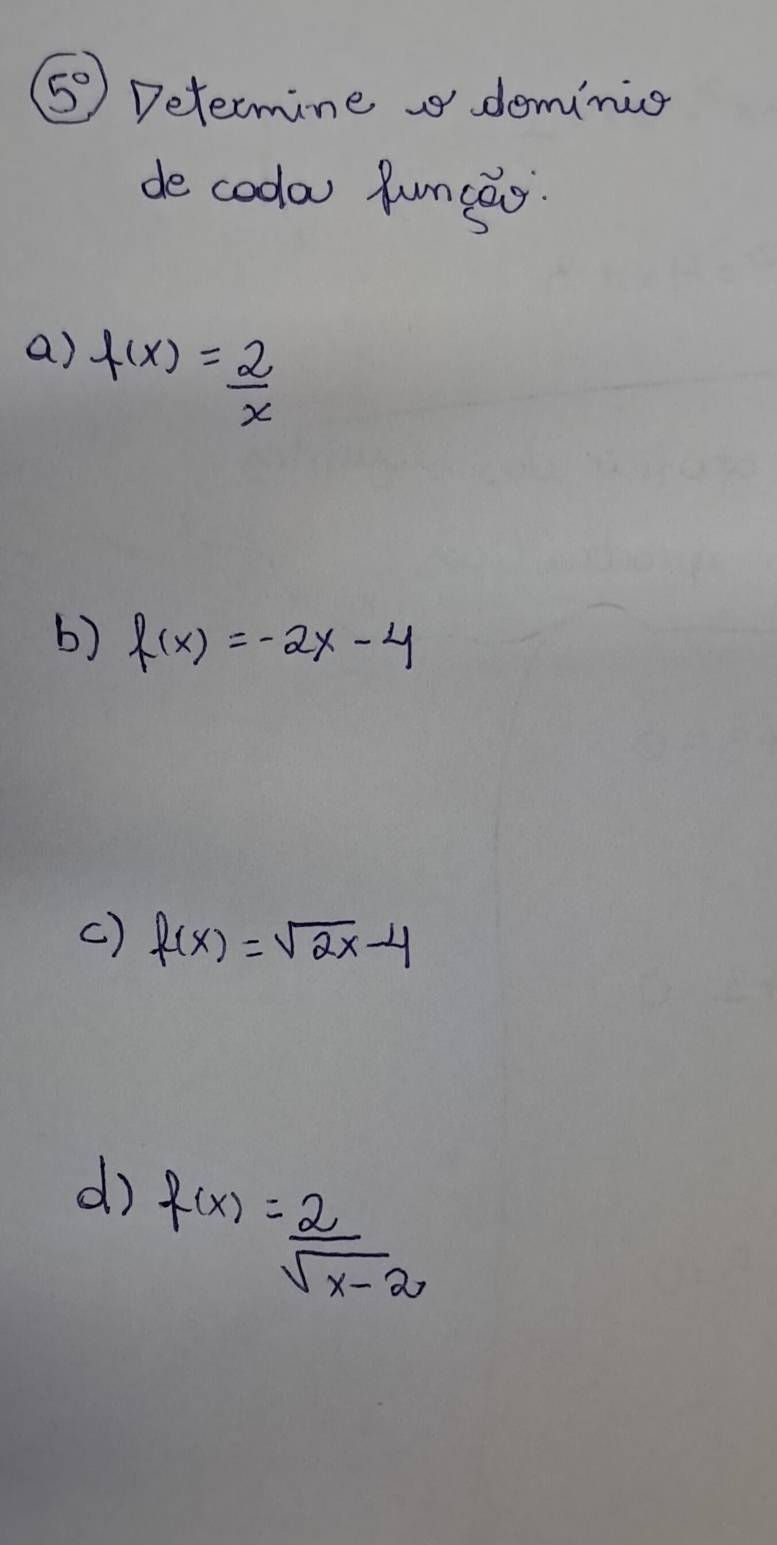 5º) Determine o domínio
de cada função.
a) f(x) = 2/x
b) f(x) = -2x - 4
c) f(x) = √2x - 4
d) f(x) = 2/√x-2